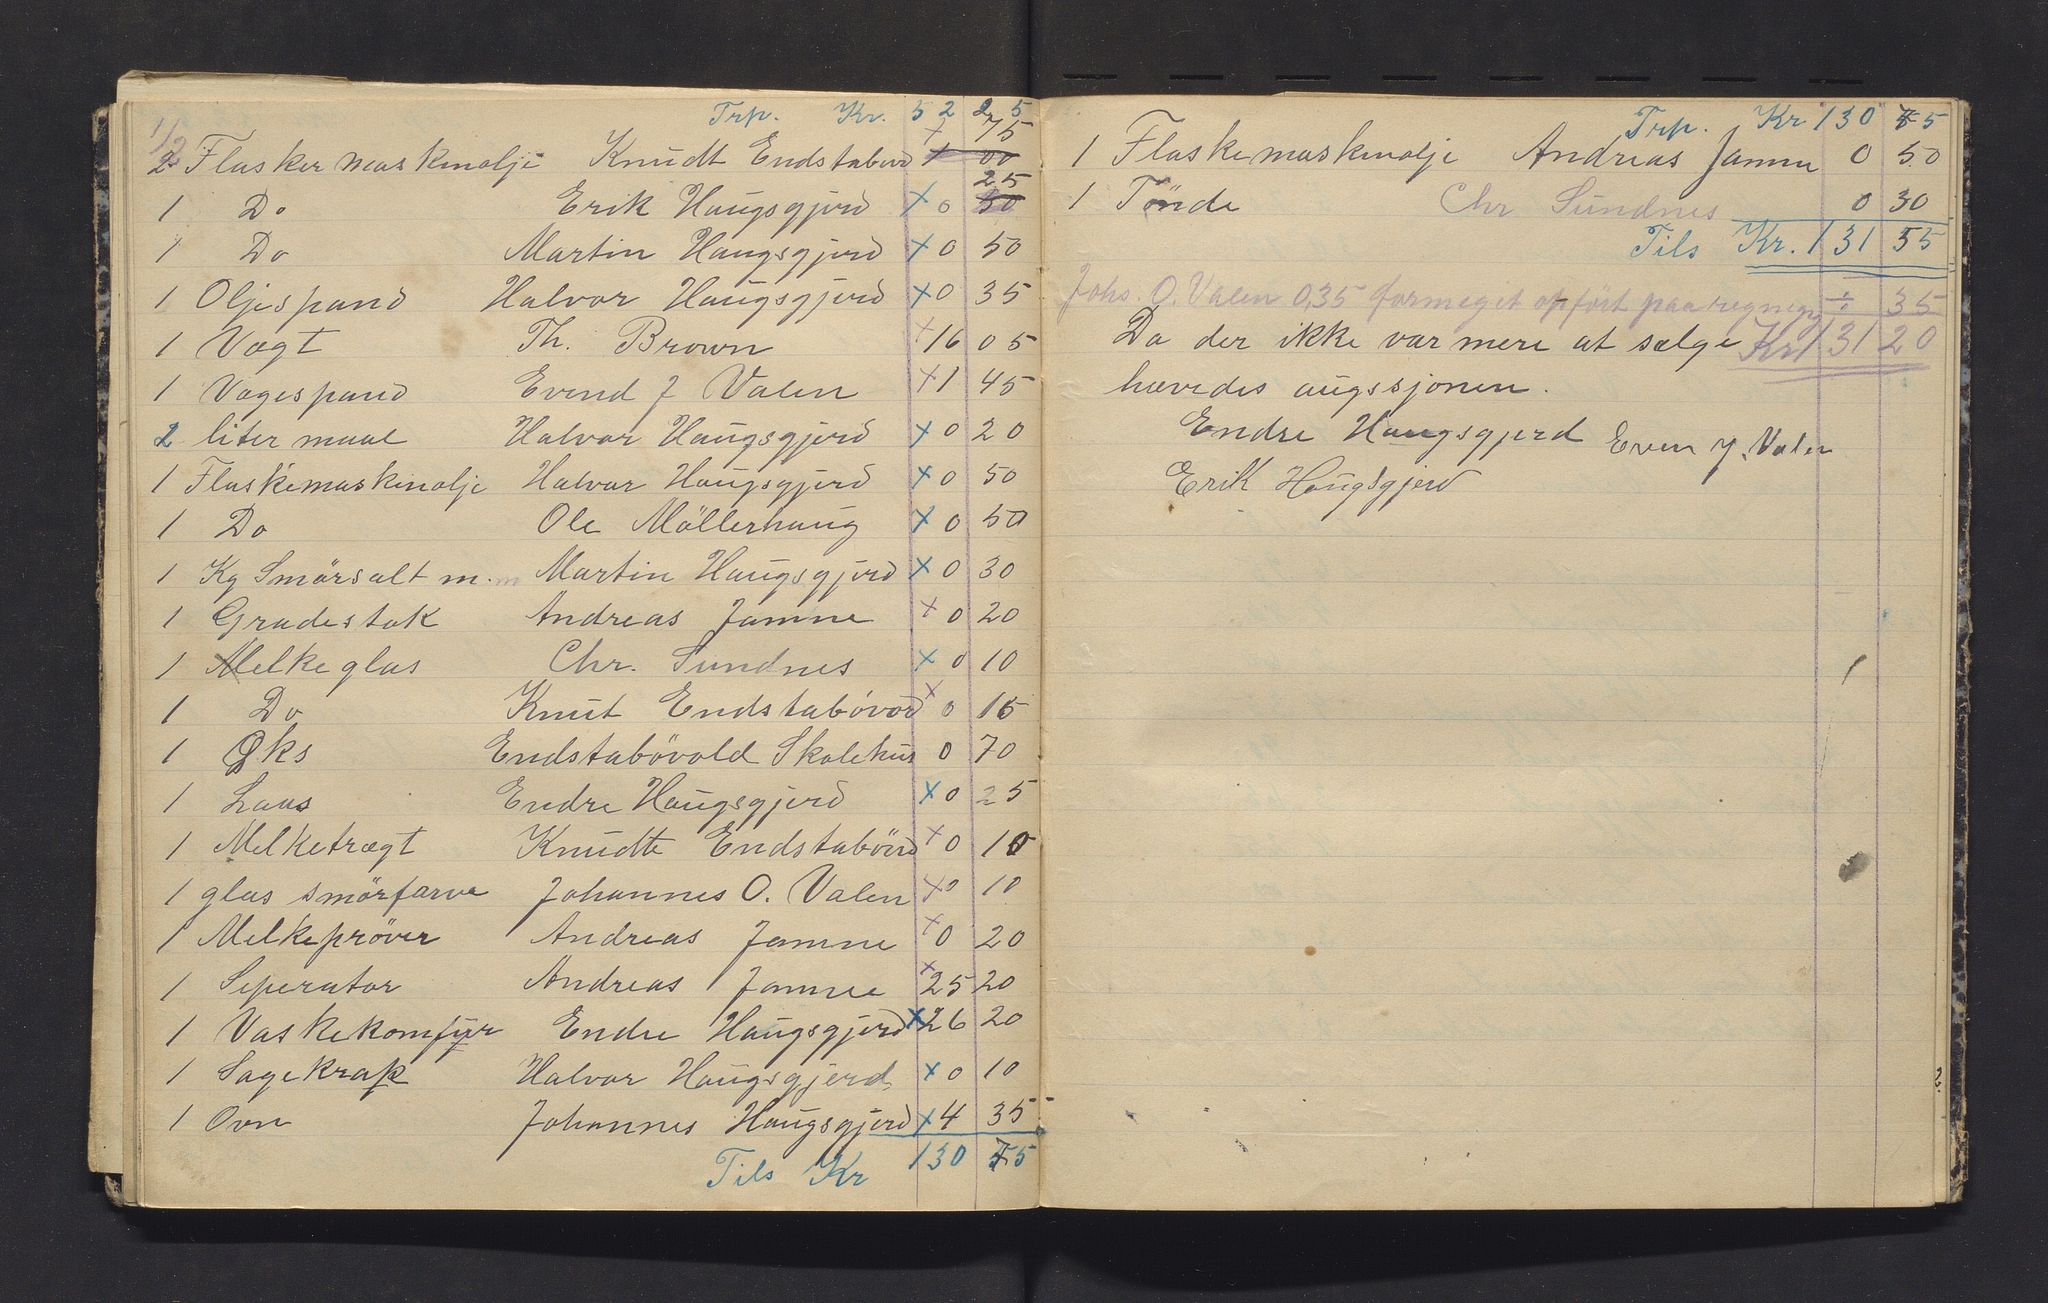 Trp. Kr. 52 25
1/2 75
2 Flasker maskinolje Knudt Endstabövd + 1 00
25
1 Do Erik Haugsgjerd x 0 50
1 Do Martin Haugsgjerd x 0 50
1 Oljespand Halvor Haugsgjerd x 0 35
1 Vægt Th. Brown + 16 05
1 Vagespand Evend J Valen + 1 45
2 liter maal Halvor Haugsgjerd x 0 20
1 Flaskemaskinolje Halvor Haugsgjerd x 0 50
1 Do Ole Möllerhaug x 0 50
1 Kg Smörsalt m. m Martin Haugsgjerd x 0 30
1 Gradestok Andreas Jamne + 0 20
1 Melkeglas Chr. Sundnes x 0 10
1 Do Knut Endstabövod x 0 15
1 Øks Endstabövold Skolehus 0 70
1 Laas Endre Haugsgjerd x 0 25
1 Melketrægt Knudte Endstabövd + 0 10
1 glas smörfarve Johannes O. Valen x 0 10
1 Melkepröver Andreas Jamne + 0 20
1 Seperator Andreas Jamne x 25 20
1 Vaskekomfyr Endre Haugsgjerd x 26 20
1 Sagekrak Halvor Haugsgjerd x 0 10
1 Ovn Johannes Haugsgjerd x 4 35
Tils Kr 130 75
Trp. Kr 130 75
1 Flaskemaskinolje Andreas Jamne 0 50
1 Tönde Chr Sundnes 0 30
Tils Kr. 131 55
Johs. O. Valen 0,35 formeget opført paa regning ÷ 35
Da der ikke var mere at sælge Kr 131 20
hævedes augssjonen.
Endre Haugsgjerd Even J. Valen
Erik Haugsgjerd